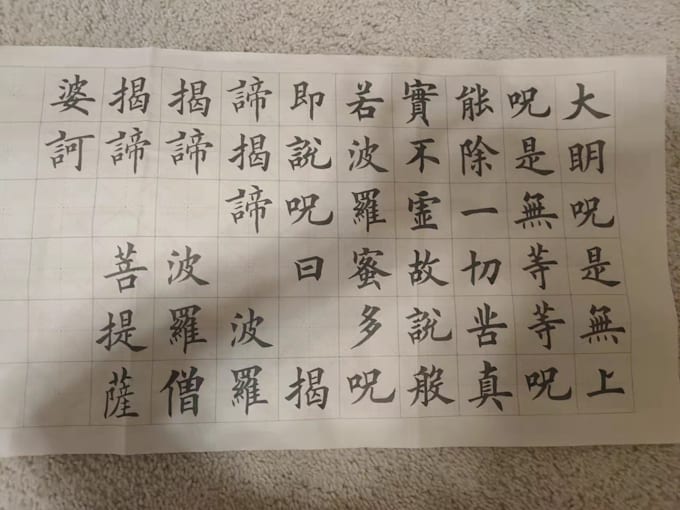 大明呪是無上
呪是無等等呪
能除一切苦真
實不虛故說般
若波羅蜜多呪
即說呪曰 揭
諦揭諦 波羅
揭諦 波羅僧
揭諦 菩提薩
婆訶